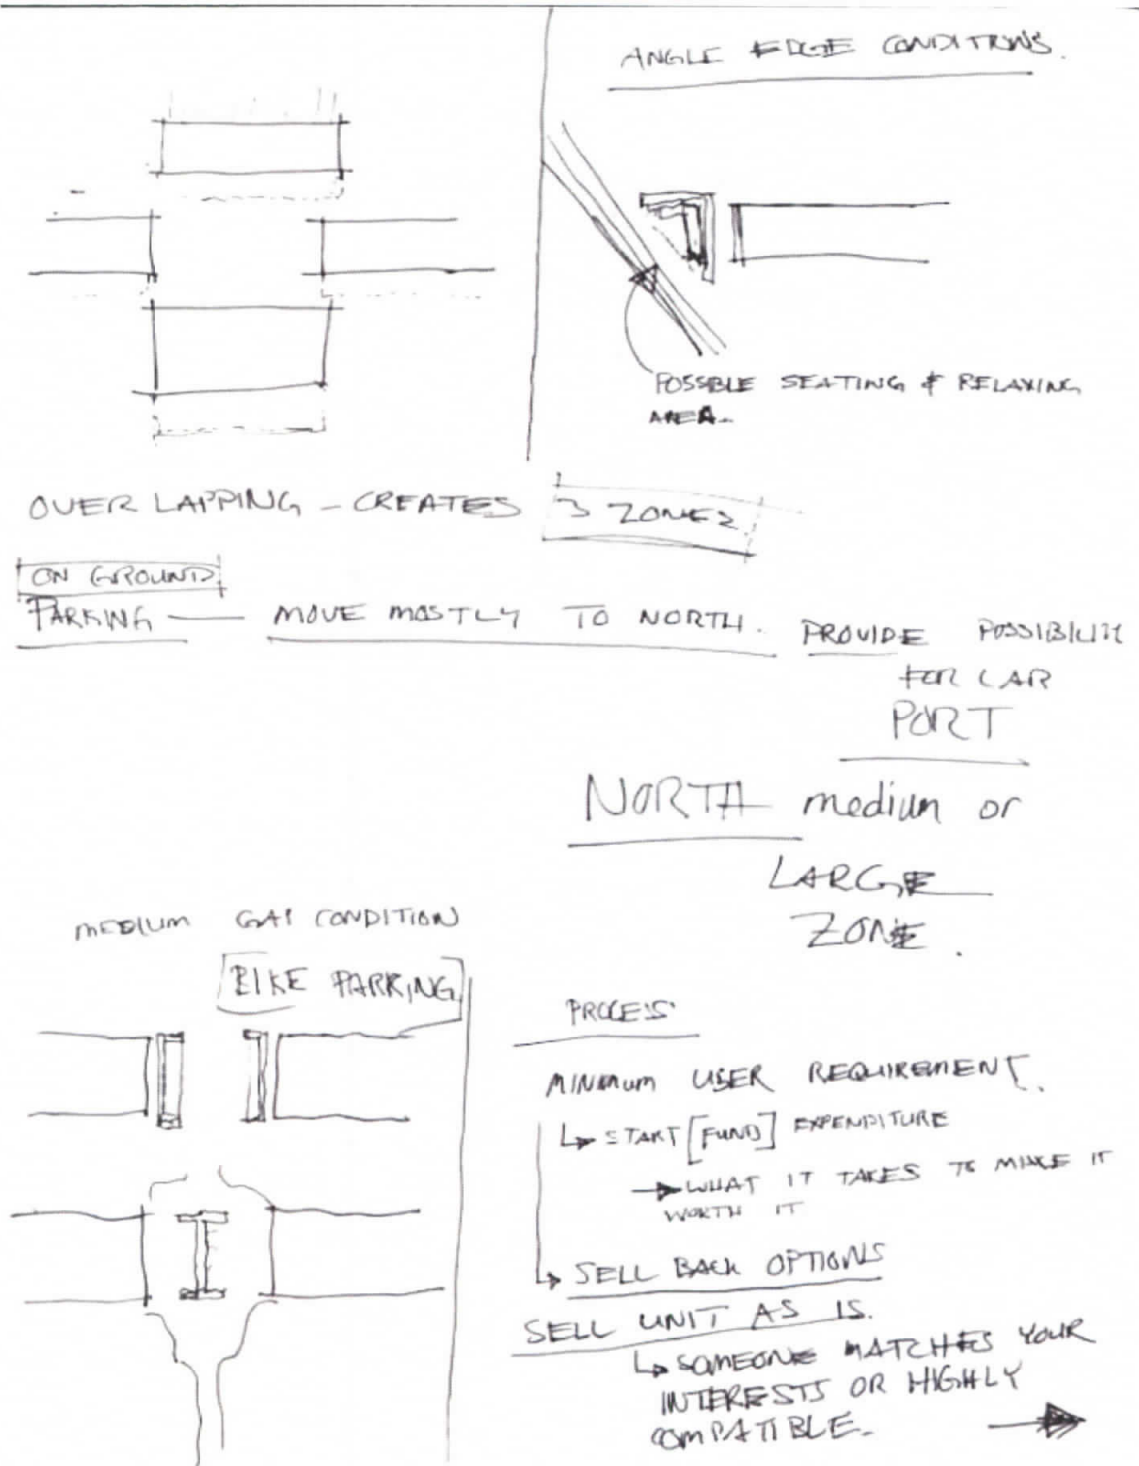 ANGLE EDGE CONDITIONS.
POSSBLE SEATING & RELAXING
AREA.
OVER LAPPING - CREATES 3 ZONES
ON GROUND
PARKING — MOVE MOSTLY TO NORTH. PROVIDE POSSIBILITY
FOR CAR
PORT
NORTH medium or
LARGE
ZONE.
MEDIUM GAP CONDITION
BIKE PARKING
PROCESS
MINIMUM USER REQUIREMENT.
↳ START [FUND] EXPENDITURE
→ WHAT IT TAKES TO MAKE IT
WORTH IT
↳ SELL BACK OPTIONS
SELL UNIT AS IS.
↳ SOMEONE MATCHES YOUR
INTERESTS OR HIGHLY
COMPATIBLE.